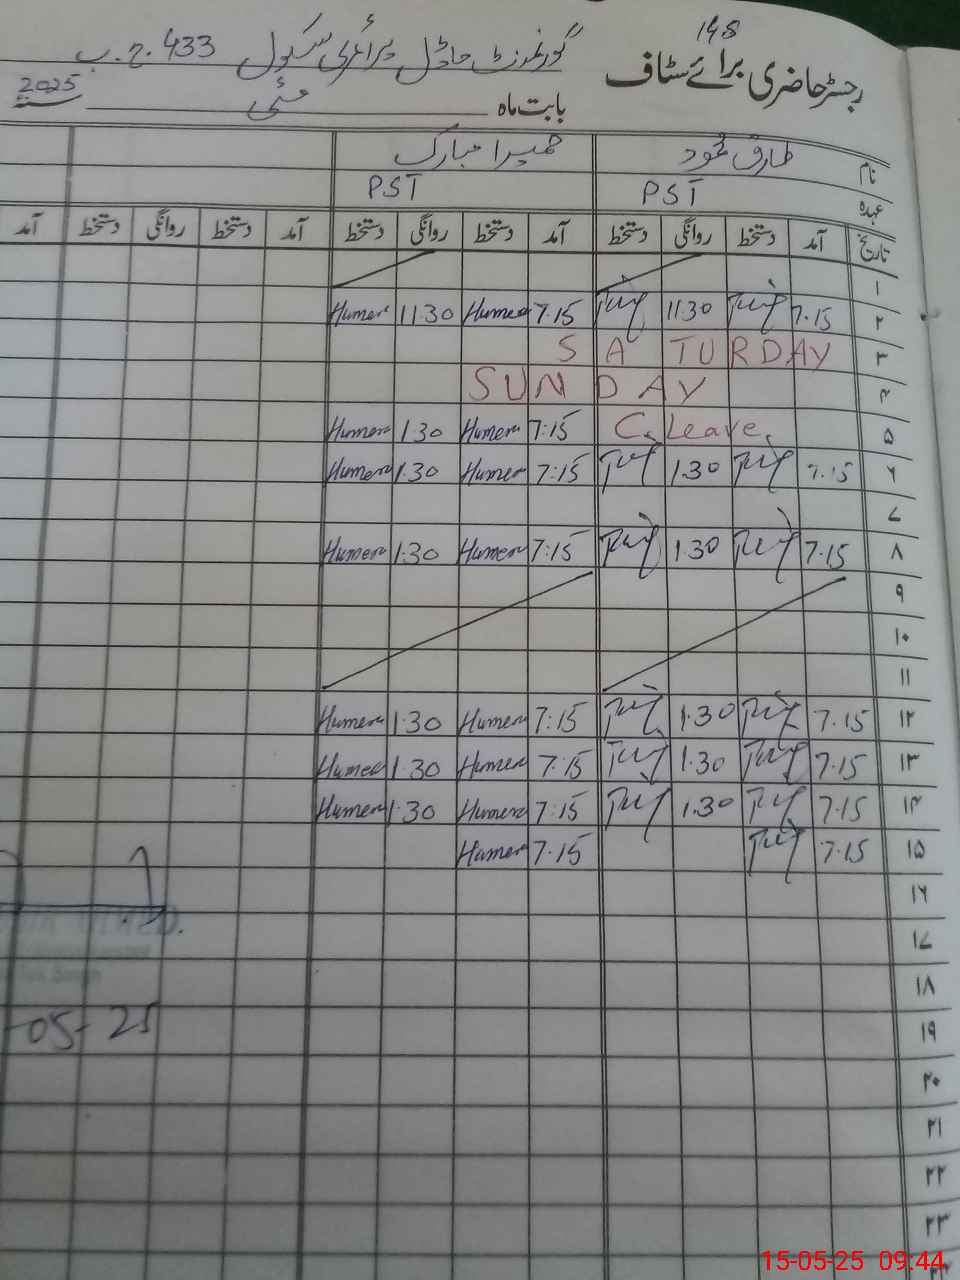 148
رجسٹر حاضری برائے سٹاف گورنمنٹ ماڈل پرائمری سکول 433 ج.ب
بابت ماہ مئی سنہ 2025
نام طارق محمود حمیرا مبارک
عہدہ PST PST
تاریخ آمد دستخط روانگی دستخط آمد دستخط روانگی دستخط آمد دستخط روانگی دستخط آمد
۱
۲ 7.15 11.30 7.15 Humera 11.30 Humera
۳ SATURDAY
۴ SUNDAY
۵ C. Leave. 7:15 Humera 1.30 Humera
۶ 7.15 1.30 7:15 Humera 1.30 Humera
۷
۸ 7.15 1.30 7:15 Humera 1.30 Humera
۹
۱۰
۱۱
۱۲ 7.15 1.30 7:15 Humera 1.30 Humera
۱۳ 7.15 1.30 7:15 Humera 1.30 Humera
۱۴ 7.15 1.30 7:15 Humera 1.30 Humera
۱۵ 7.15 7.15 Humera
۱۶
۱۷
۱۸
۱۹
-05-25
۲۰
۲۱
۲۲
۲۳
15-05-25 09:44